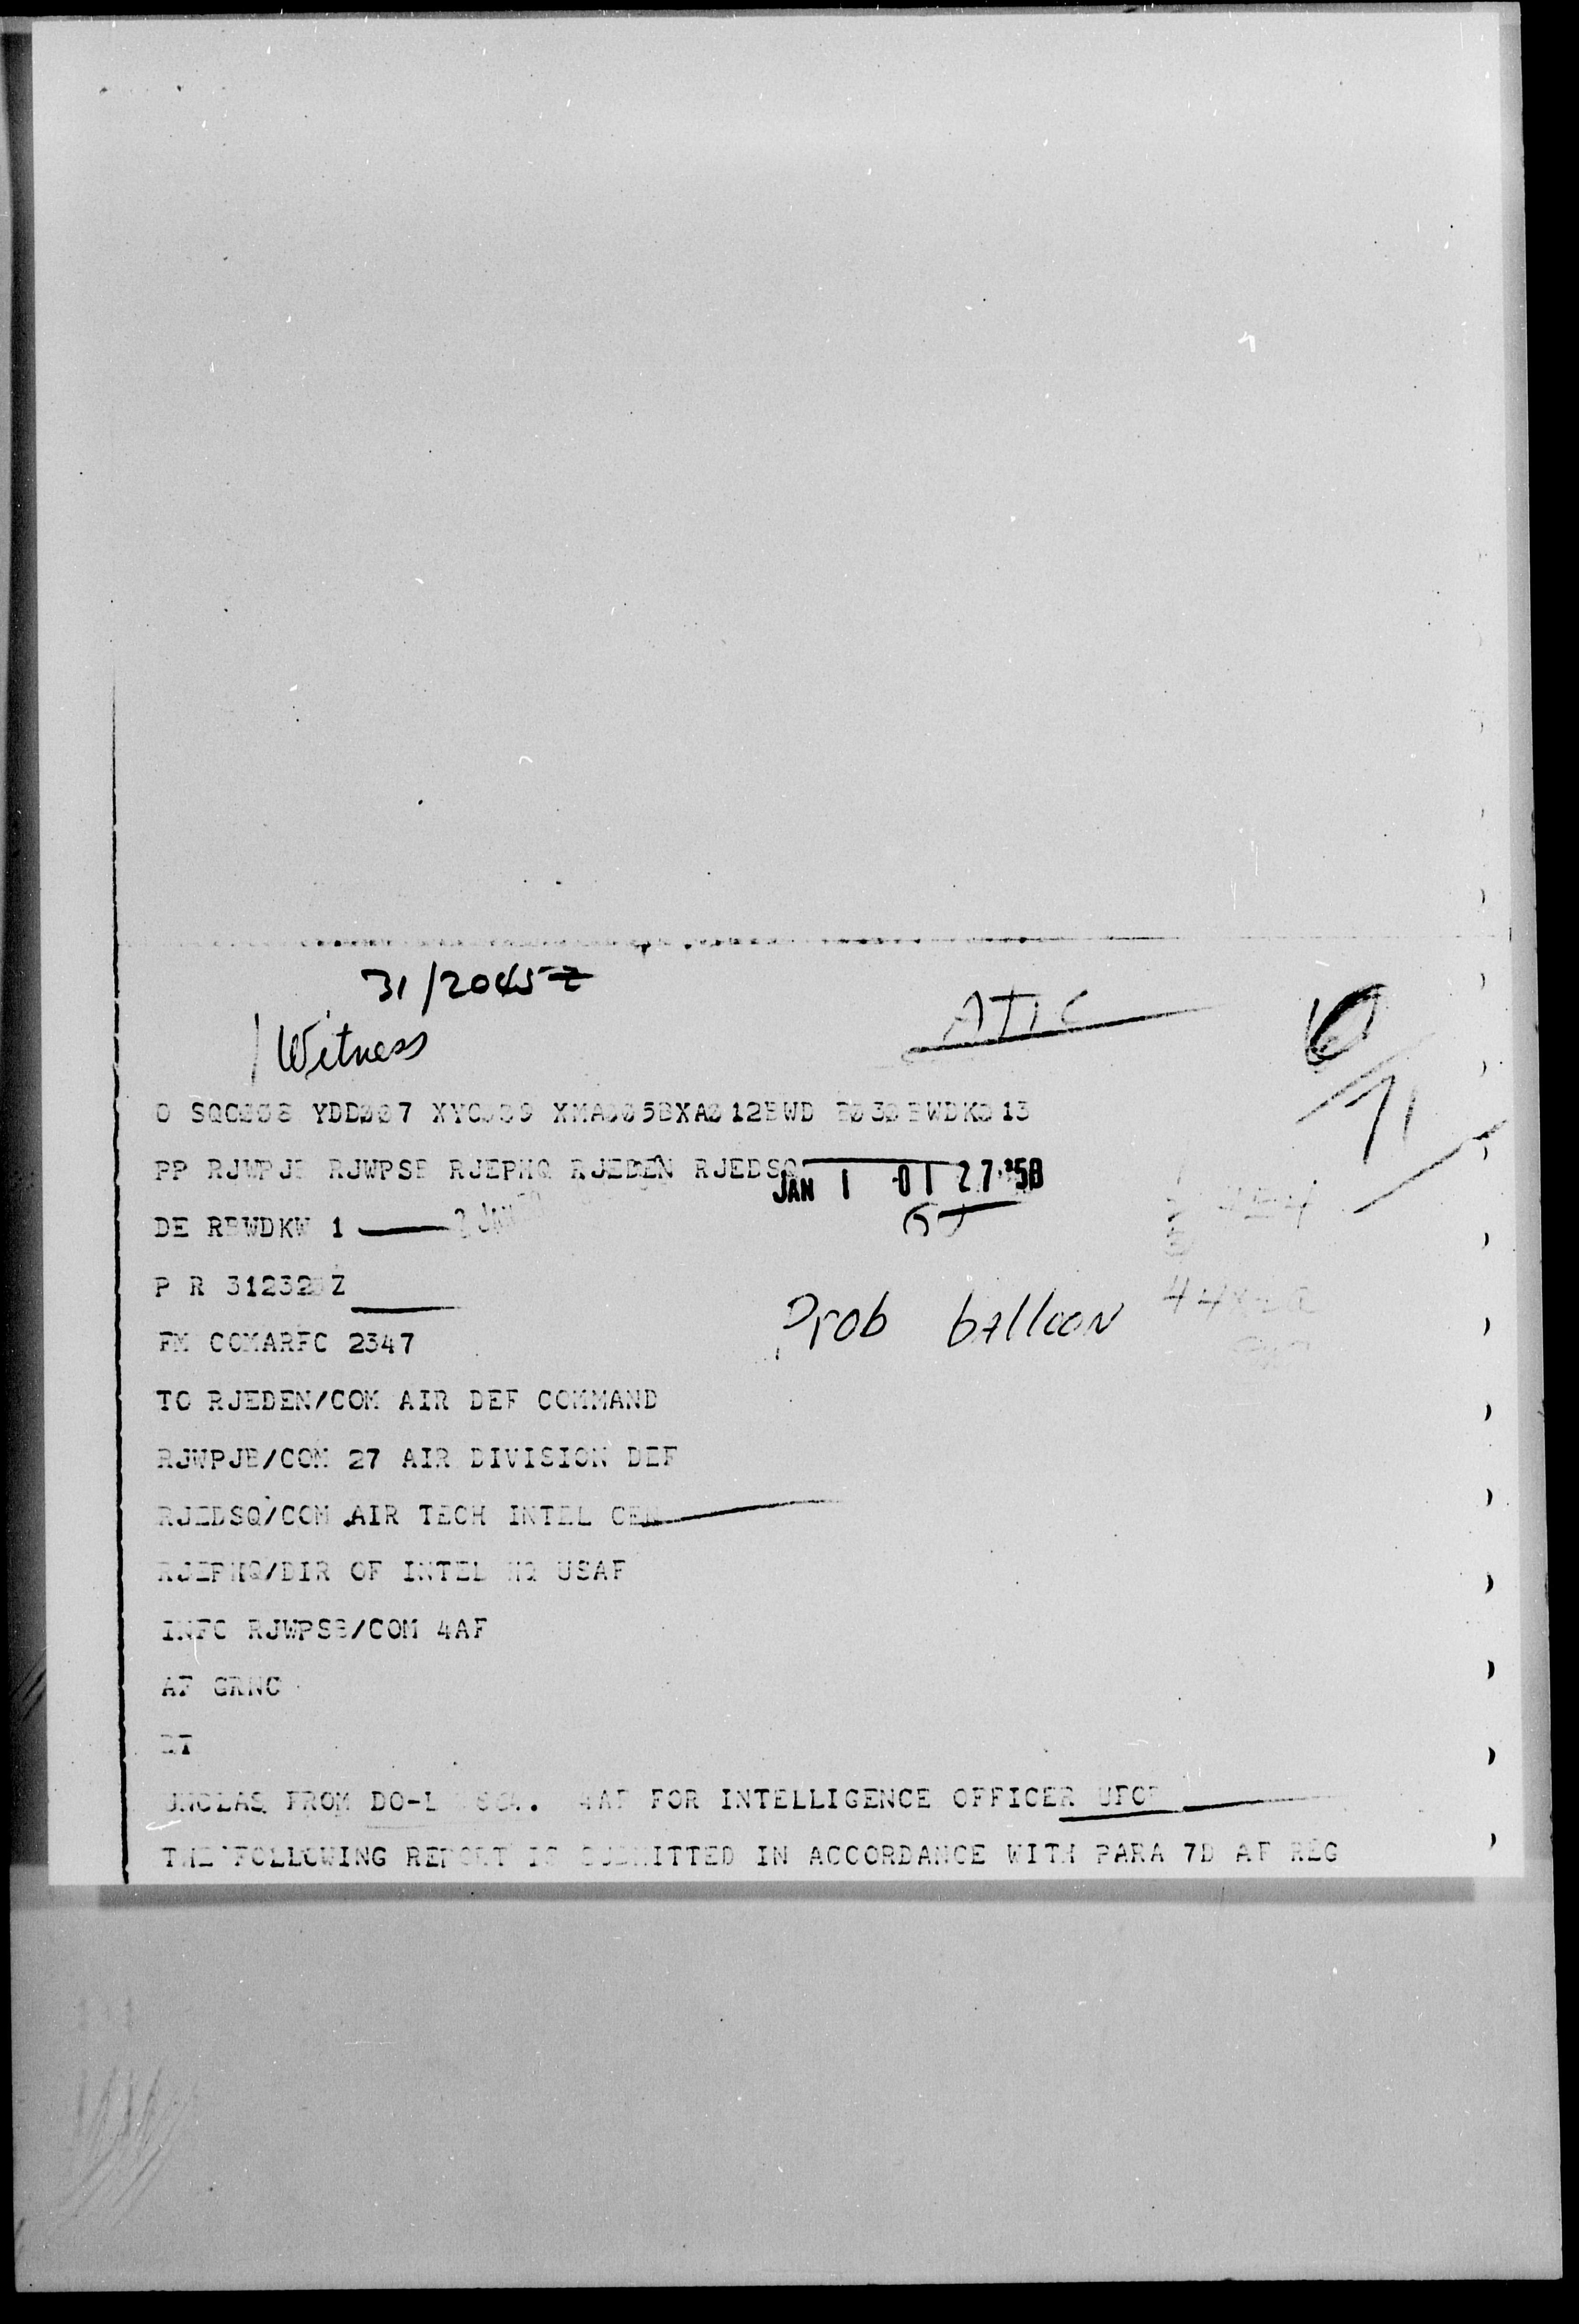 31/2045Z
1 Witness
ATIC
PP RJWPJB RJWPSB RJEPHQ RJEDEN RJEDSQ
JAN 1 01 27 '58
DE RBWDKW 1
P R 312320Z
FM COMARFC 2347
Prob balloon
TO RJEDEN/COM AIR DEF COMMAND
RJWPJB/COM 27 AIR DIVISION DEF
RJEDSQ/COM AIR TECH INTEL CEN
RJEPHQ/DIR OF INTEL HQ USAF
INFO RJWPSB/COM 4AF
AF GRNC
BT
UNCLAS FROM DO-L 4AF FOR INTELLIGENCE OFFICER UFOB
THE FOLLOWING REPORT IS SUBMITTED IN ACCORDANCE WITH PARA 7D AF REG